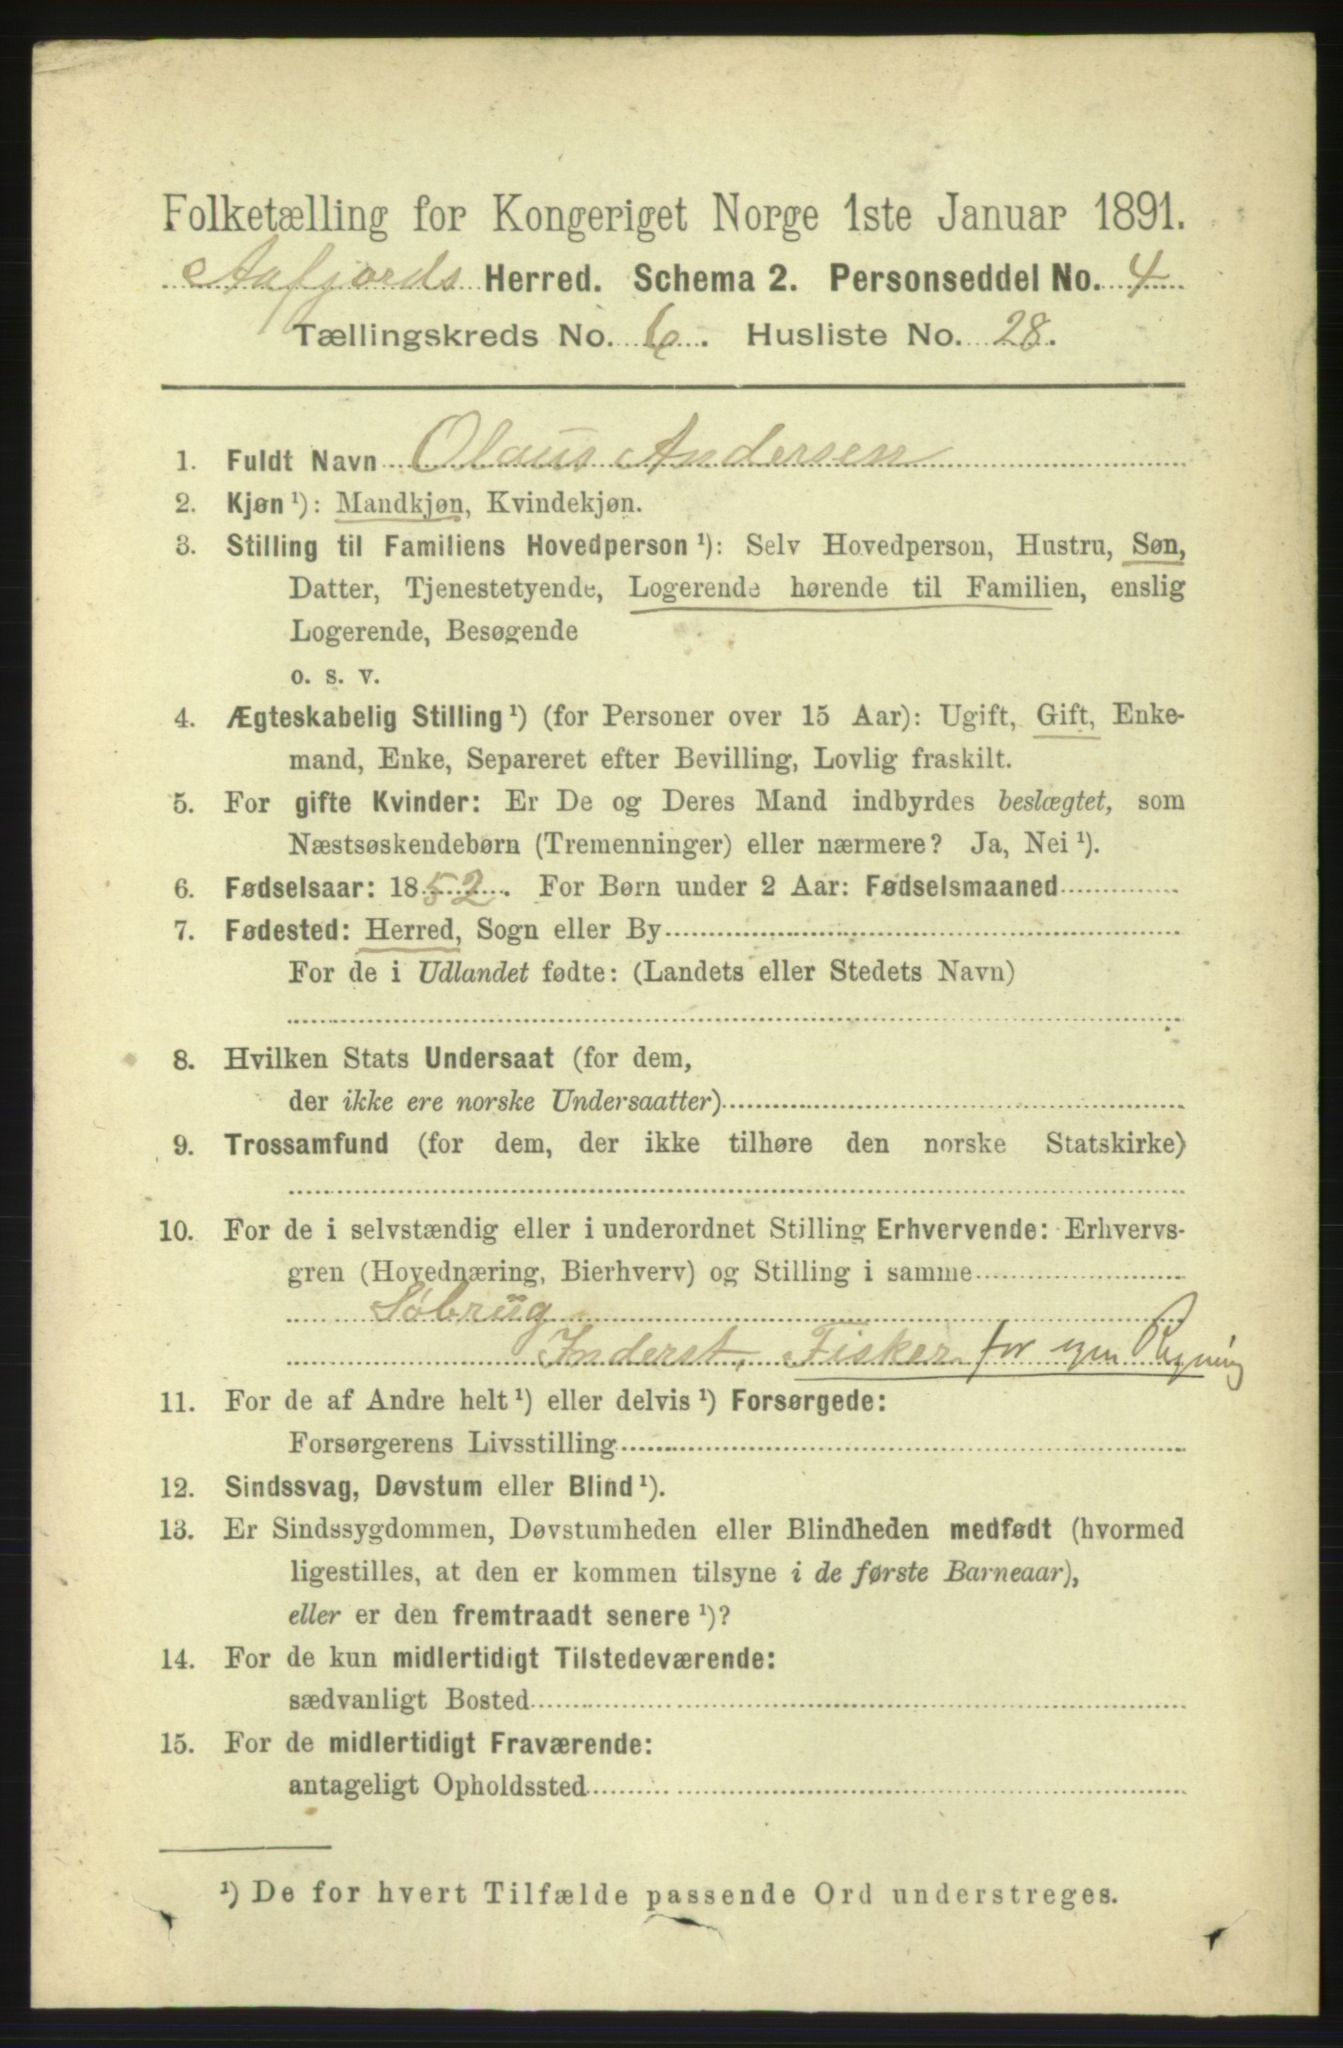 Folketælling for Kongeriget Norge 1ste Januar 1891.
Aafjords Herred. Schema 2. Personseddel No. 4
Tællingskreds No. 6. Husliste No. 28.
1. Fuldt Navn Olaus Andersen
2. Kjøn ¹): Mandkjøn, Kvindekjøn.
3. Stilling til Familiens Hovedperson ¹): Selv Hovedperson, Hustru, Søn,
Datter, Tjenestetyende, Logerende hørende til Familien, enslig
Logerende, Besøgende
o. s. v.
4. Ægteskabelig Stilling ¹) (for Personer over 15 Aar): Ugift, Gift, Enke-
mand, Enke, Separeret efter Bevilling, Lovlig fraskilt.
5. For gifte Kvinder: Er De og Deres Mand indbyrdes beslægtet, som
Næstsøskendebørn (Tremenninger) eller nærmere? Ja, Nei ¹).
6. Fødselsaar: 1852. For Børn under 2 Aar: Fødselsmaaned
7. Fødested: Herred, Sogn eller By
For de i Udlandet fødte: (Landets eller Stedets Navn)
8. Hvilken Stats Undersaat (for dem,
der ikke ere norske Undersaatter)
9. Trossamfund (for dem, der ikke tilhøre den norske Statskirke)
10. For de i selvstændig eller i underordnet Stilling Erhvervende: Erhvervs-
gren (Hovednæring, Bierhverv) og Stilling i samme
Söbrug
Inderst, Fisker for egen Regning
11. For de af Andre helt ¹) eller delvis ¹) Forsørgede:
Forsørgerens Livsstilling
12. Sindssvag, Døvstum eller Blind ¹).
13. Er Sindssygdommen, Døvstumheden eller Blindheden medfødt (hvormed
ligestilles, at den er kommen tilsyne i de første Barneaar),
eller er den fremtraadt senere ¹)?
14. For de kun midlertidigt Tilstedeværende:
sædvanligt Bosted
15. For de midlertidigt Fraværende:
antageligt Opholdssted
¹) De for hvert Tilfælde passende Ord understreges.